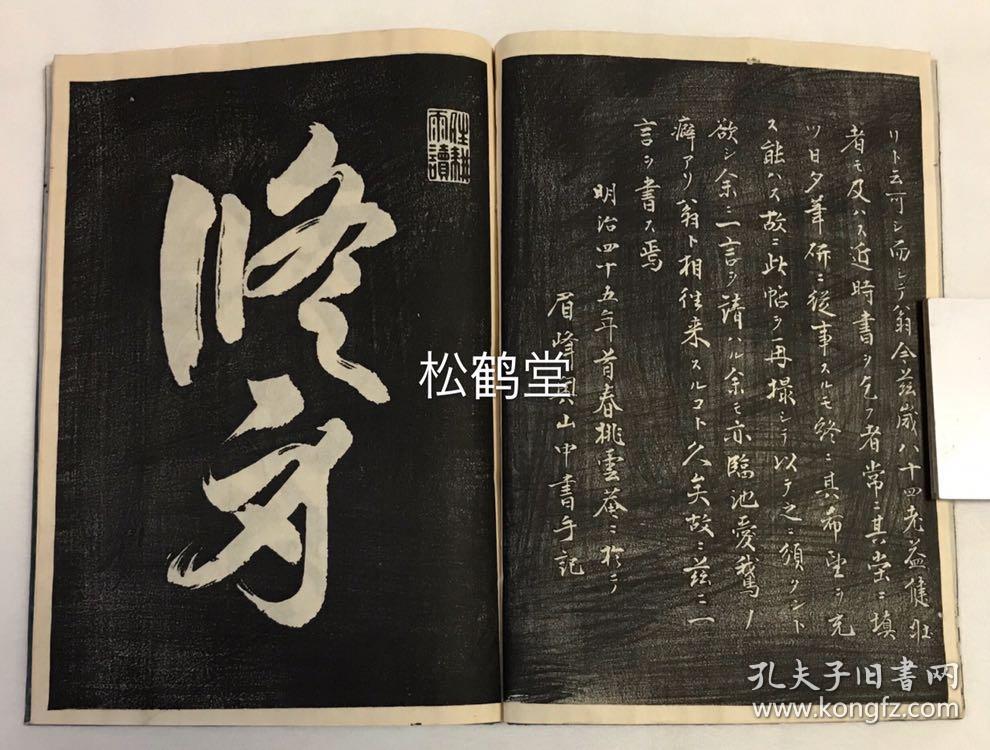 リト云可シ而シテ翁今茲歳八十四老益健壮
者モ及ハス近時書ヲ乞フ者常ニ其堂ニ填
ツ日夕筆研ニ従事スルモ終ニ其希望ヲ充
ス能ハス故ニ此帖ヲ再撮シテ以テ之ニ頒タント
欲シ余ニ一言ヲ請ハル余モ亦臨池愛鵞ノ
癖アリ翁ト相往来スルコト久矣故ニ茲ニ一
言ヲ書ス焉
明治四十五年首春桃雲菴ニ於テ
眉峰山中書手記
耕
雨讀
修身
松鹤堂
孔夫子旧书网
www.kongfz.com